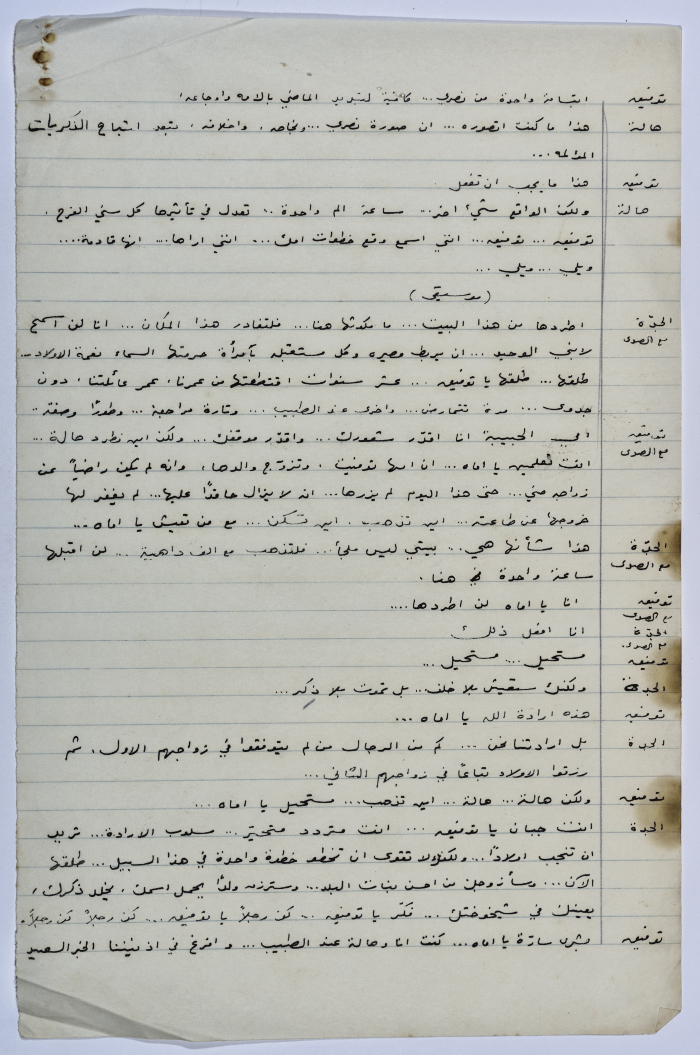 توفيق ابتسامة واحدة من نصري... كافية لتبديد الماضي بآلامه واوجاعه.
هالة هذا ما كنت اتصوره... ان صورة نصري... ونجاحه، واخلاقه، تبعد اشباح الذكريات
المؤلمه...
توفيق هذا ما يجب ان تفعل
هالة ولكن الواقع شيء اخر... ساعة الم واحدة.. تعدل في تأثيرها كل سني الفرح.
توفيق... توفيق... انني اسمع وقع خطوات امك... انني اراها... انها قادمة....
ويلي... ويلي...
(موسيقى)
الجدّة اطردها من هذا البيت... ما مكوثها هنا... فلتغادر هذا المكان... انا لن اسمح
مع الصدى لابني الوحيد... ان يربط مصيره وكل مستقبله بآمرأة حرمتها السماء نعمة الاولاد...
طلقها... طلقها يا توفيق... عشر سنوات اقتطعتها من عمرنا، عمر عائلتنا، دون
جدوى... مرة تتمارض... واخرى عند الطبيب... وتارة مراجعة... وطورًا وصفة..
توفيق امي الحبيبة انا اقدّر شعورك... واقدّر موقفك... ولكن اين نطرد هالة...
مع الصدى انت تعلمين يا اماه... ان امها توفيت، وتزوّج والدها، وانه لم يكن راضياً عن
زواجه مني... حتى هذا اليوم لم يزرها... انه لا يزال حاقدًا عليها... لم يغفر لها
خروجها عن طاعته... اين تذهب. اين تسكن... مع من تعيش يا اماه...
الجدّة هذا شأنها هي... بيتي ليس ملجأ... فلتذهب مع الف داهية... لن اقبلها
مع الصدى ساعة واحدة هنا.
توفيق انا يا اماه لن اطردها....
مع الصدى
الجدّة انا افعل ذلك
مع الصدى.
توفيق مستحيل... مستحيل...
الجدة ولكنك ستعيش بلا خلف.. بل تموت بلا ذكر...
توفيق هذه ارادة الله يا اماه...
الجدة بل ارادتنا نحن... كم من الرجال من لم يتوفقوا في زواجهم الاول، ثم
رزقوا الاولاد تباعًا في زواجهم الثاني...
توفيق ولكن هالة... هالة... اين تذهب... مستحيل يا اماه...
الجدة انت جبان يا توفيق... انت متردد متحيّر... مسلوب الارادة... تريد
ان تنجب اولادًا... ولكنك لا تقوى ان تخطو خطوة واحدة في هذا السبيل... طلقها
الآن... وسأزوجك من احسن بنات البلد... وسترزق ولدًا يحمل اسمك، يخلد ذكرك،
يعينك في شيخوختك... فكّر يا توفيق... كن رجلاً يا توفيق... كن رجلاً كن رجلاً.
توفيق بشرى سارّة يا اماه... كنت انا وهالة عند الطبيب... وافرغ في اذنيننا الخبر السعيد